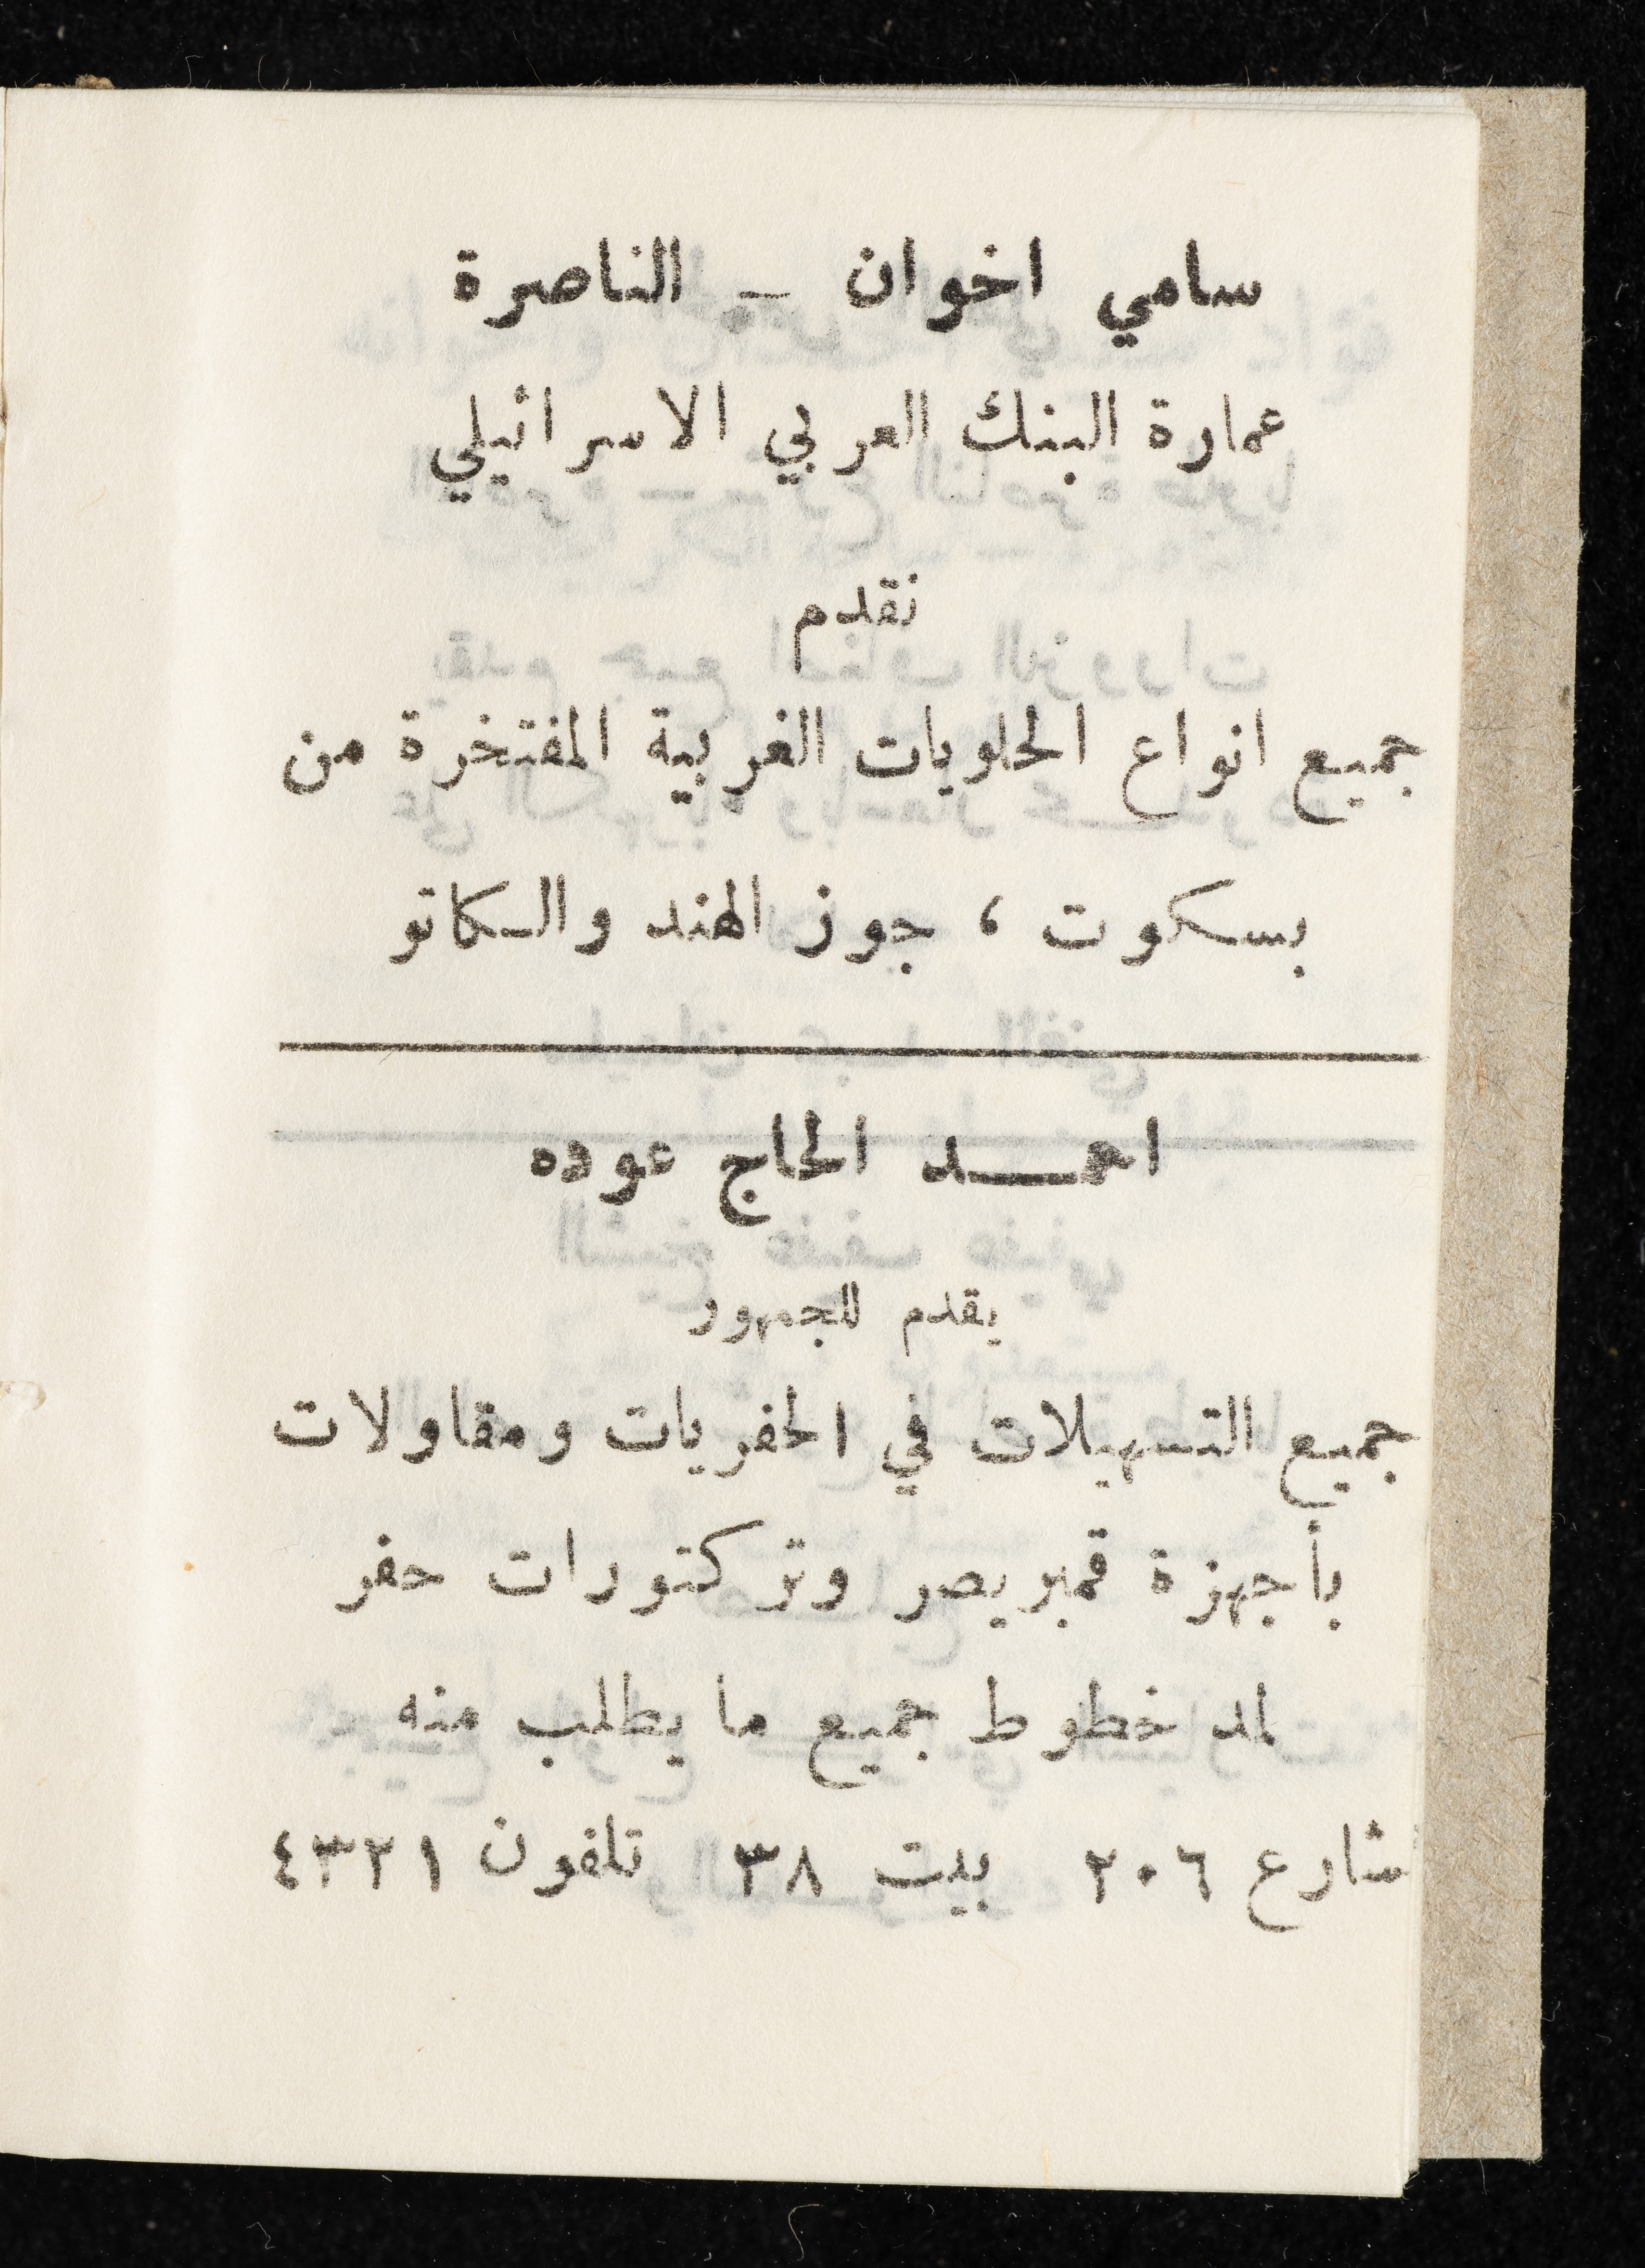 سامي اخوان – الناصرة
عمارة البنك العربي الاسرائيلي
نقدم
جميع انواع الحلويات الغربية المفتخرة من
بسكوت ، جوز الهند والكاتو
احمد الحاج عوده
يقدم للجمهور
جميع التسهيلات في الحفريات ومقاولات
بأجهزة قمبريصر وتركتورات حفر
لمد خطوط جميع ما يطلب منه
شارع ٢٠٦ بيت ٣٨ تلفون ٤٣٢١